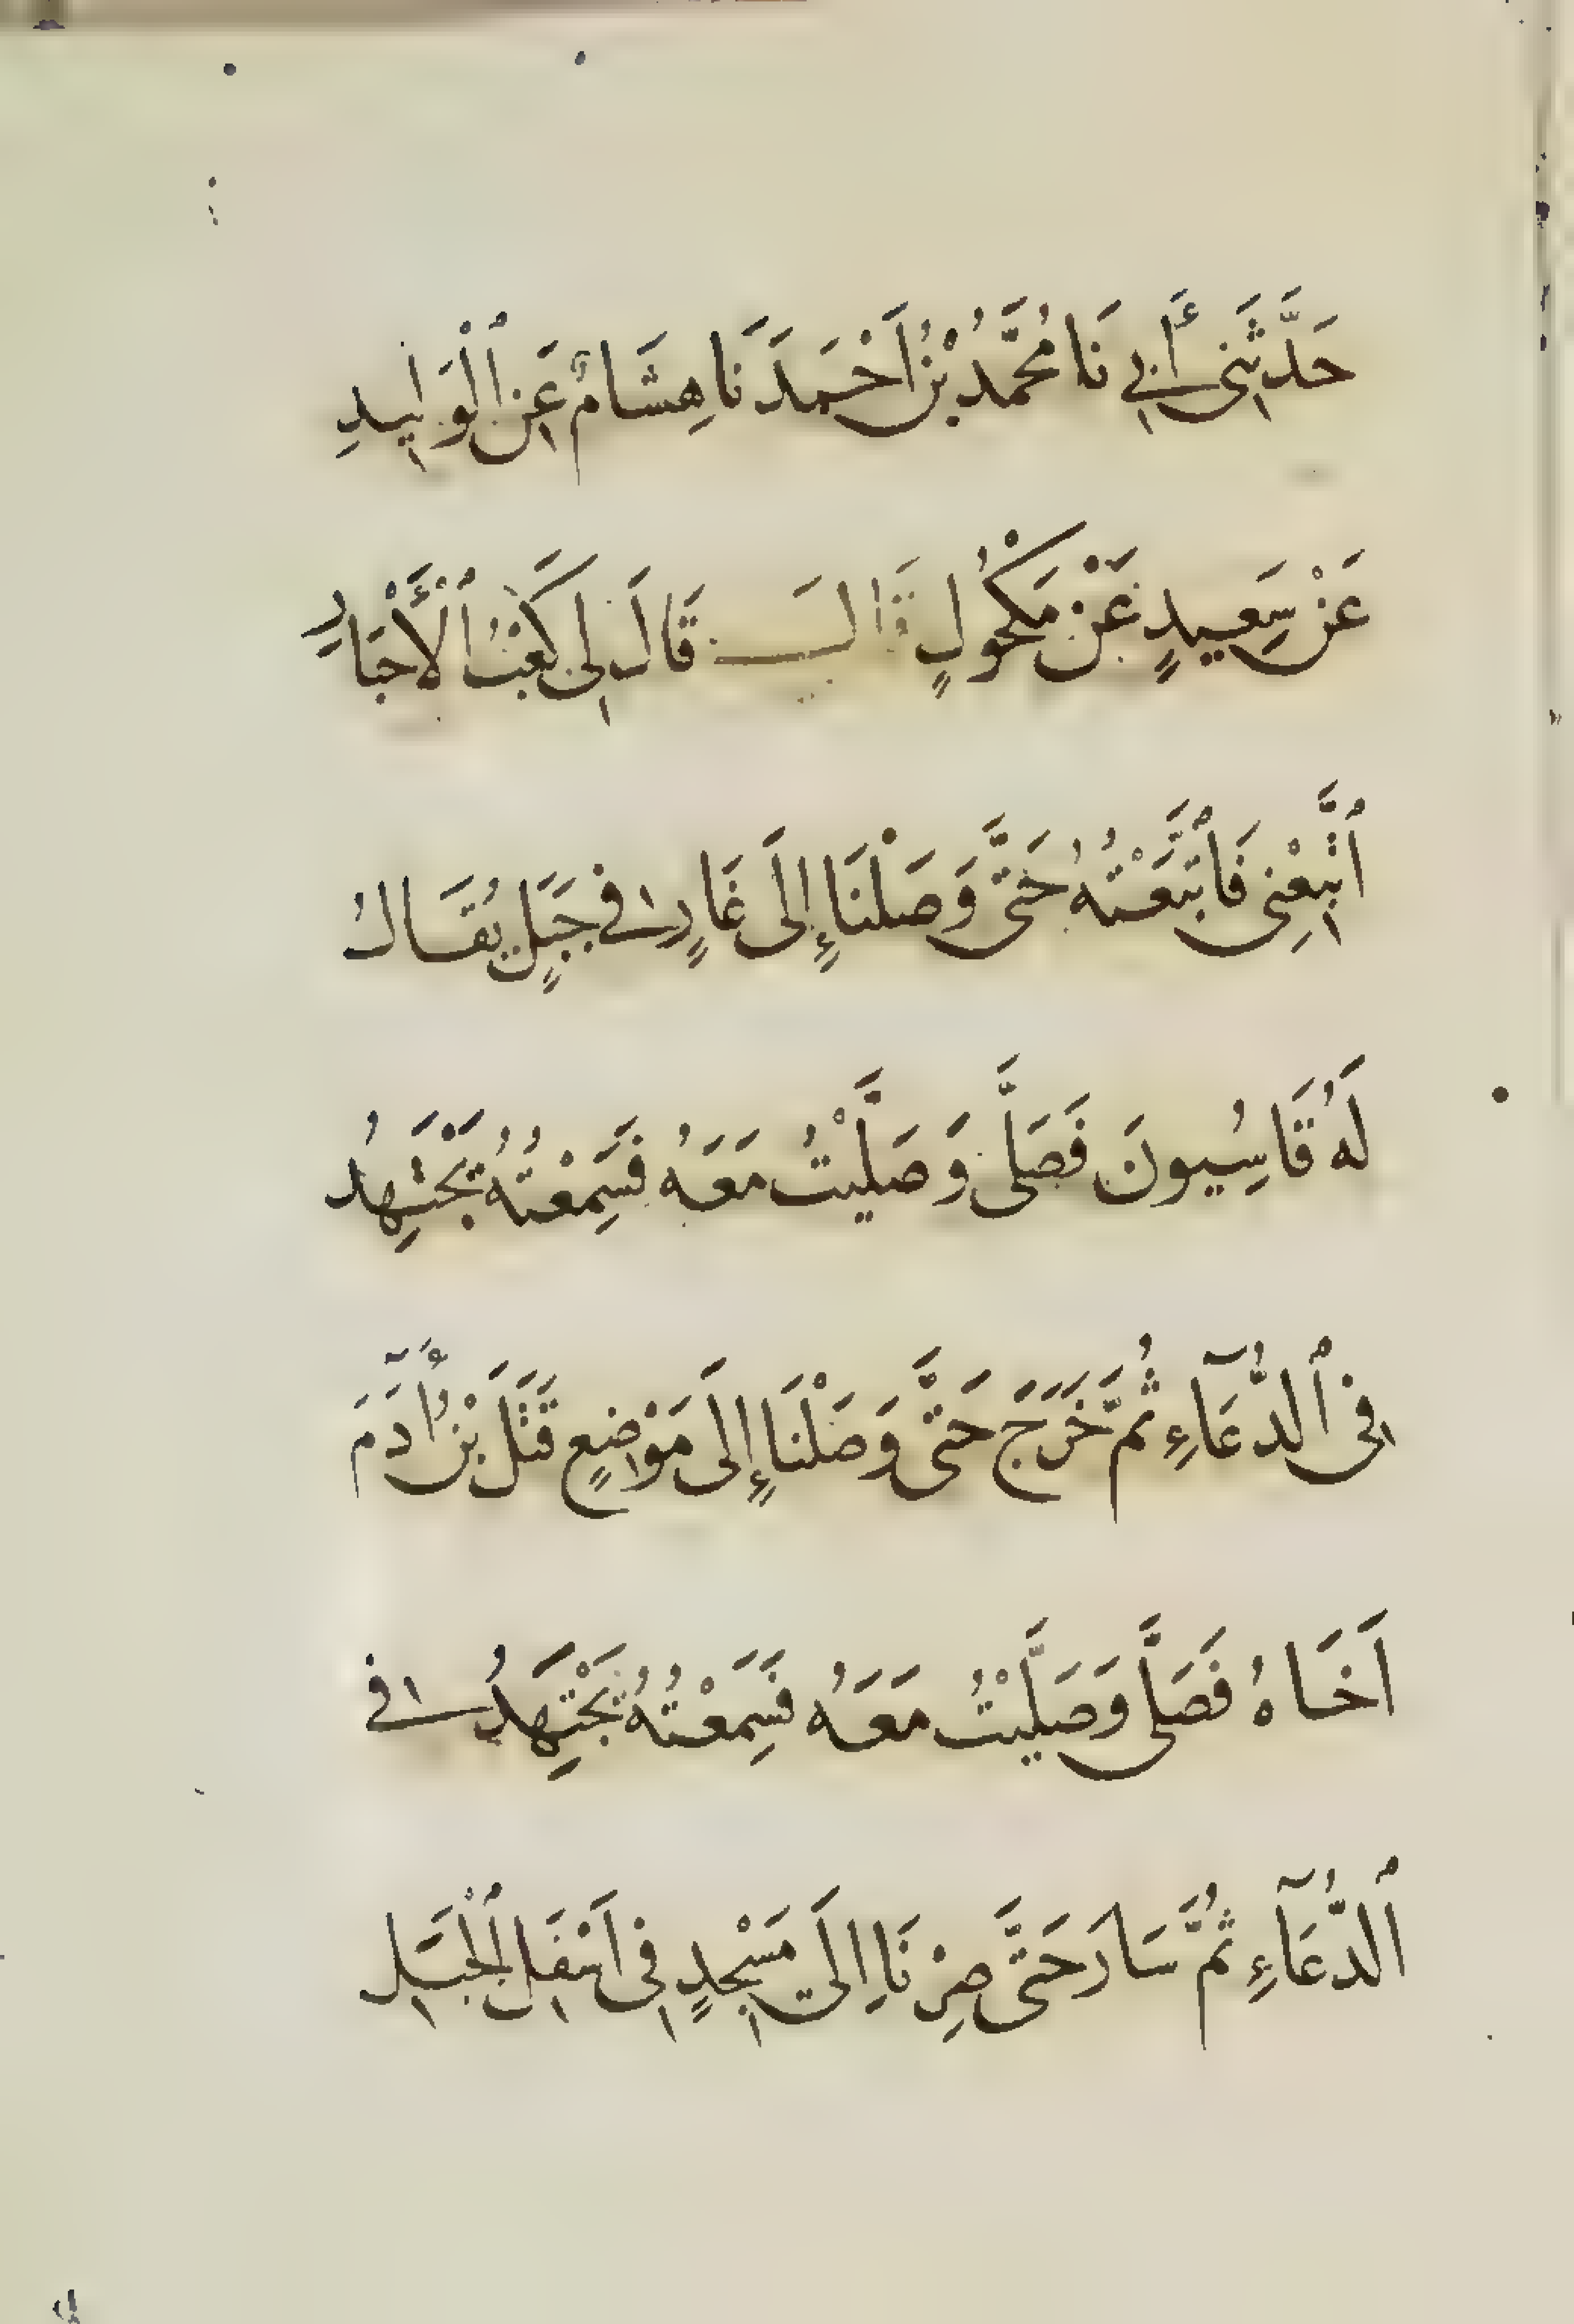 حَدَّثَنِي أَبِي نَا مُحَمَّدُ بْنُ اَحْمَدَ نَا هِشَامٌ عَنِ ٱلْوَلِيدِ
عَنْ سَعِيدٍ عَنْ مَكْحُولٍ قَالَ قَالَ لِي كَعْبُ ٱلْأَحْبَارِ
ٱتَّبِعْنِي فَٱتَّبَعْتُهُ حَتَّى وَصَلْنَا إِلَى غَارٍ فِي جَبَلٍ يُقَالُ
لَهُ قَاسِيُونَ فَصَلَّى وَصَلَّيْتُ مَعَهُ فَسَمِعْتُهُ يَجْتَهِدُ
فِي ٱلدُّعَآءِ ثُمَّ خَرَجَ حَتَّى وَصَلْنَا إِلَى مَوْضِعٍ قَتَلَ بْنُ أَدَمَ
اَخَاهُ فَصَلَّى وَصَلَّيْتُ مَعَهُ فَسَمِعْتُهُ يَجْتَهِدُ فِي
ٱلدُّعَآءِ ثُمَّ سَارَ حَتَّى صِرْنَا اِلَى مَسْجِدٍ فِي اَسْفَلِ ٱلْجَبَلِ